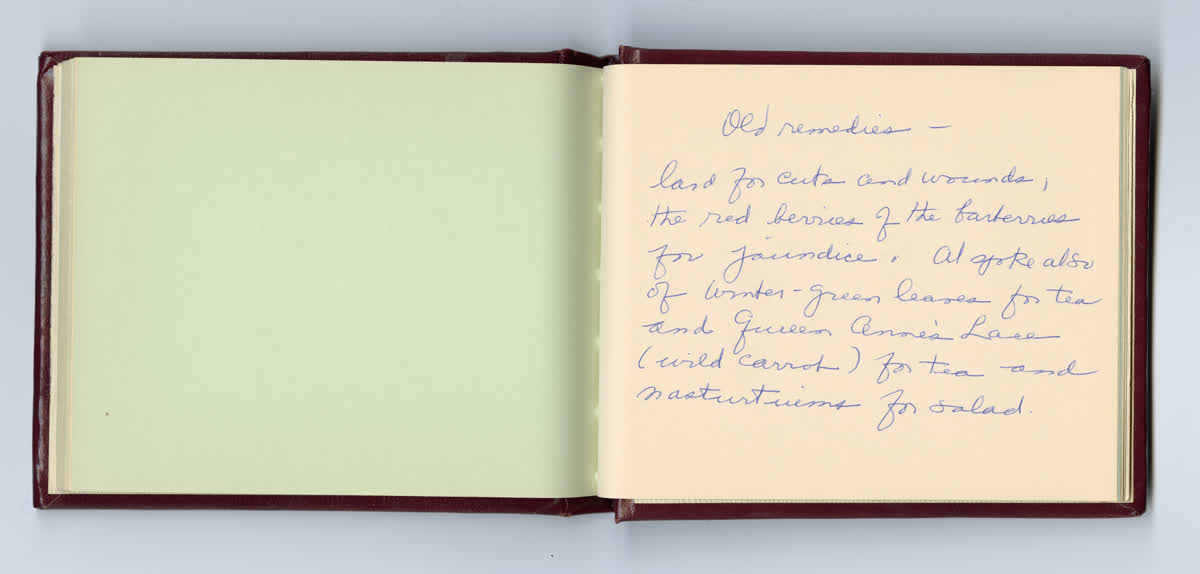 Old remedies —
lard for cuts and wounds,
the red berries of the barberries
for jaundice. Al spoke also
of winter-green leaves for tea
and Queen Anne's Lace
(wild carrot) for tea and
nasturtiums for salad.